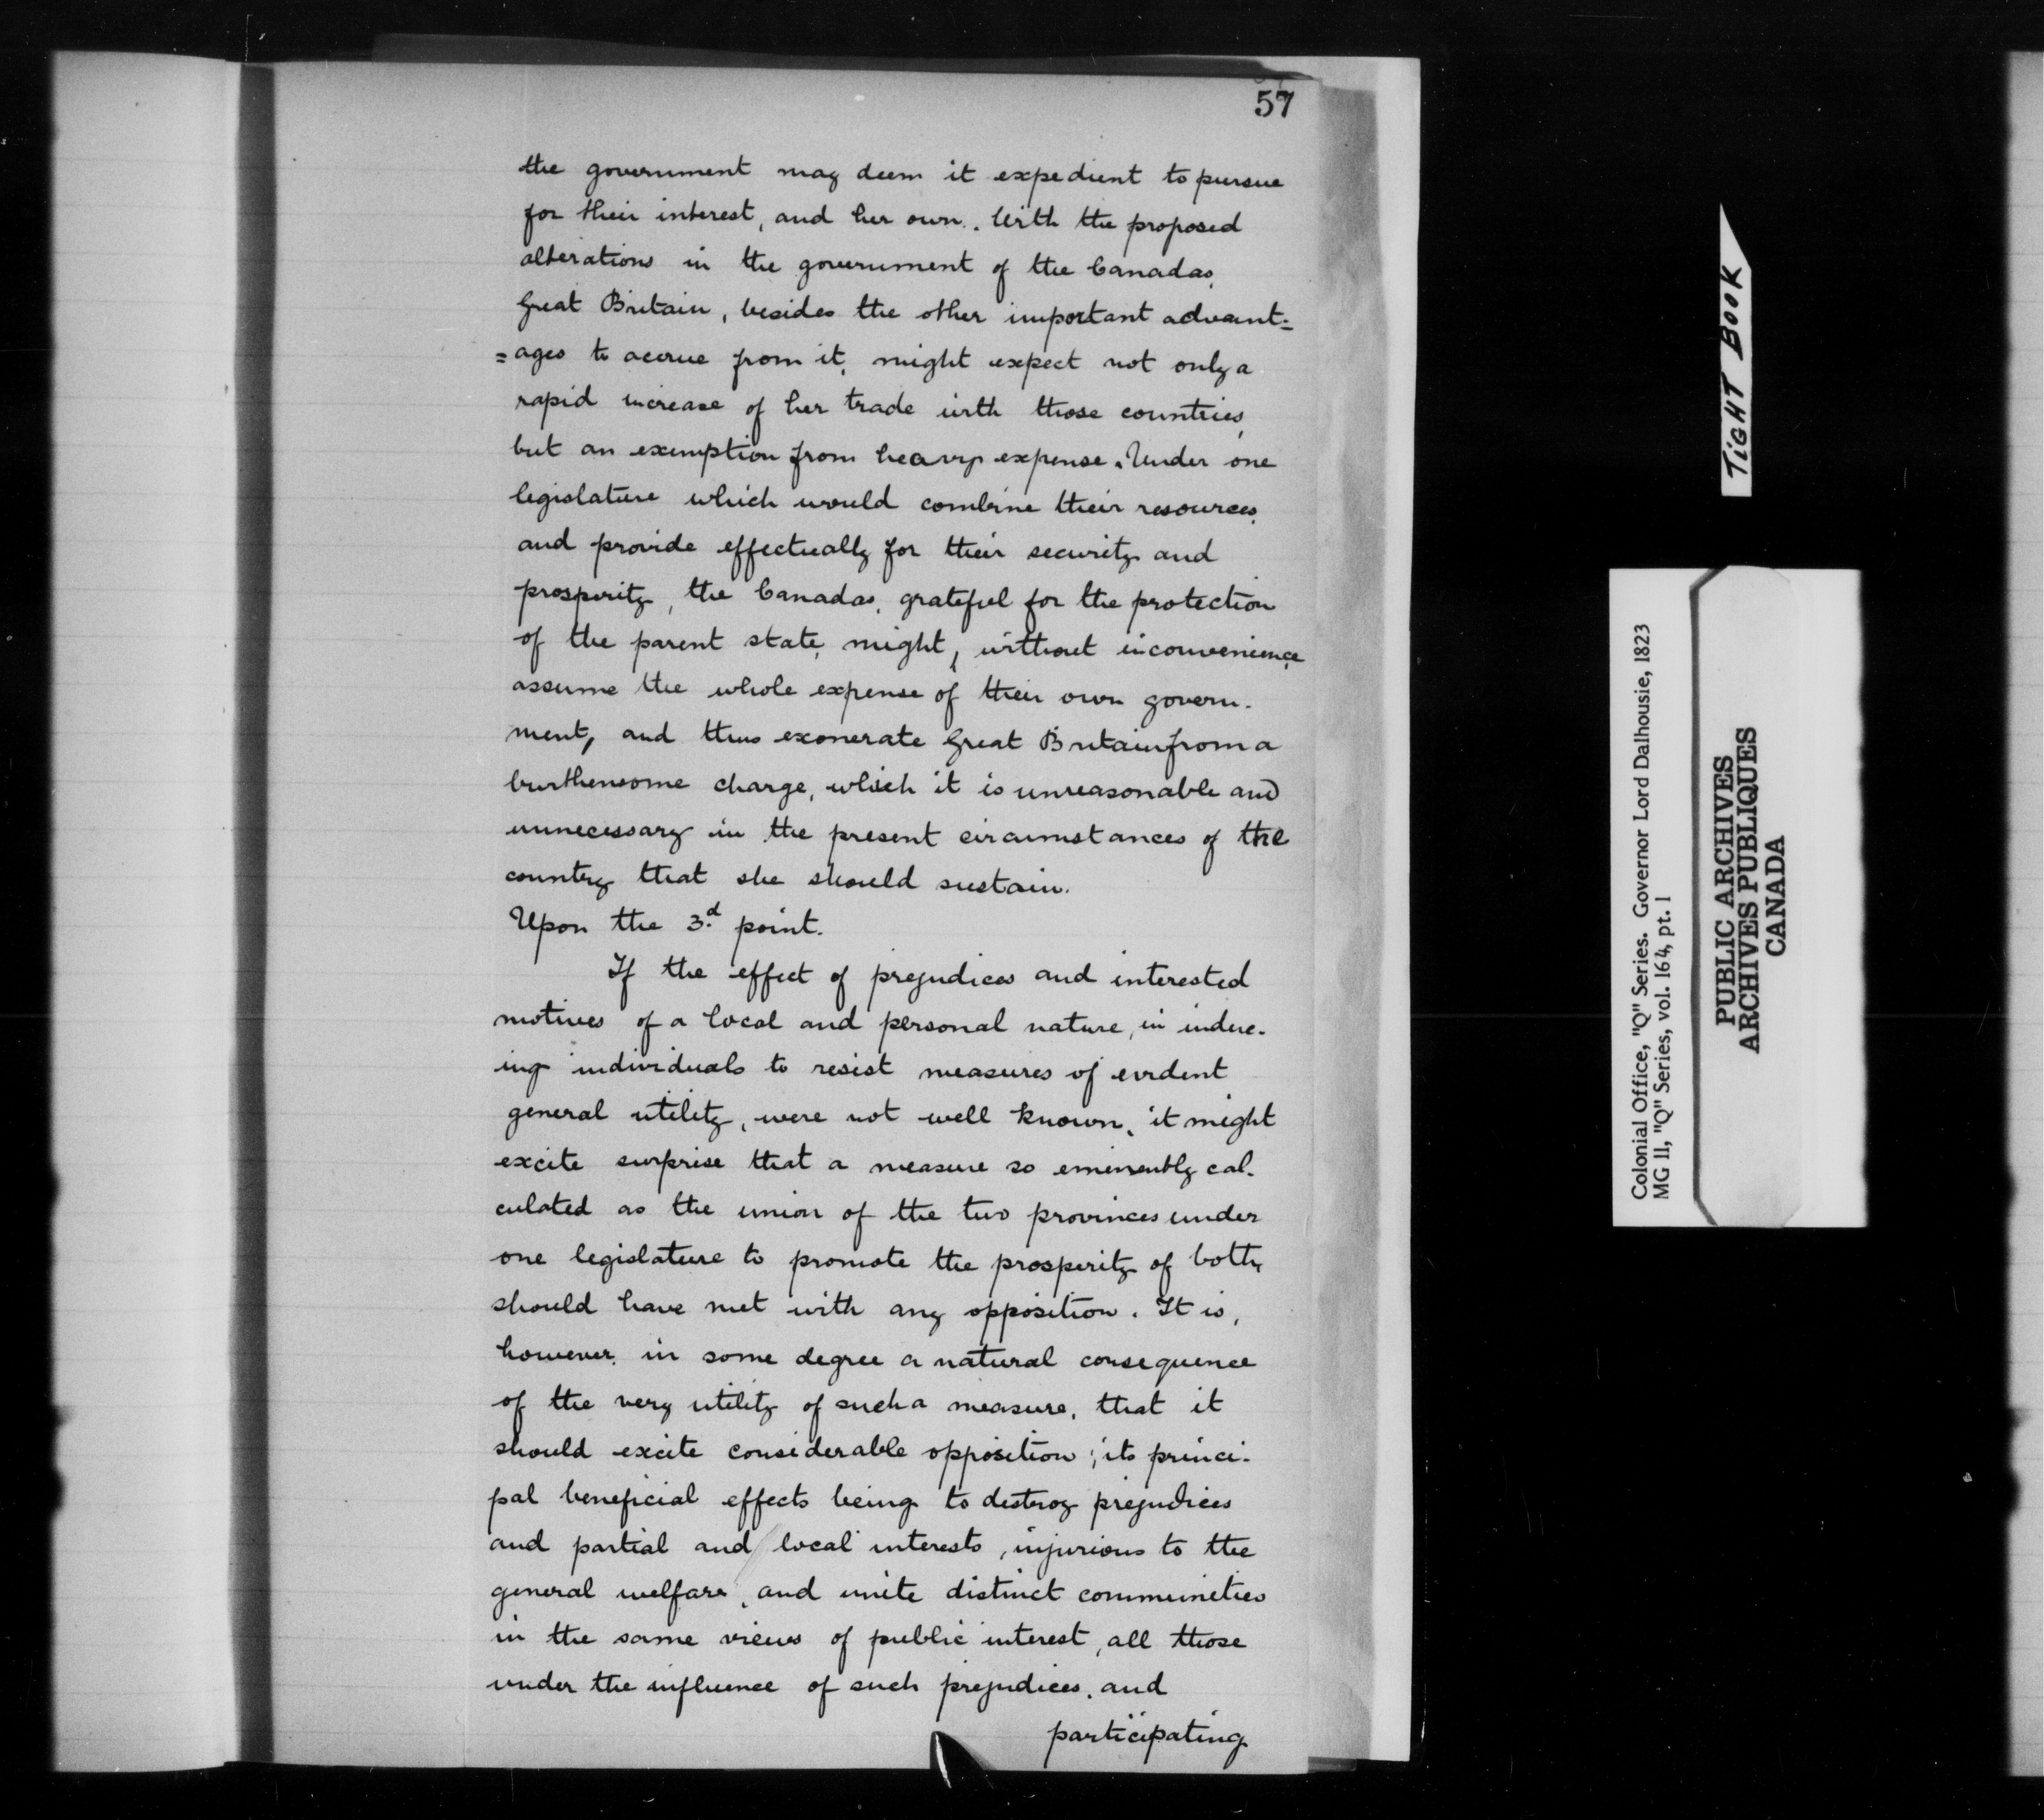 57
the government may deem it expedient to pursue
for their interest, and her own. With the proposed
alterations in the government of the Canadas,
Great Britain, besides the other important advant=
=ages to accrue from it, might expect not only a
rapid increase of her trade with those countries,
but an exemption from heavy expense. Under one
legislature which would combine their resources,
and provide effectually for their security and
prosperity, the Canadas, grateful for the protection
of the parent state, might, without inconvenience,
assume the whole expense of their own govern-
ment, and thus exonerate Great Britain from a
burthensome charge, which it is unreasonable and
unnecessary in the present circumstances of the
country that she should sustain.
Upon the 3.d point.
If the effect of prejudices and interested
motives of a local and personal nature, in induc-
ing individuals to resist measures of evident
general utility, were not well known, it might
excite surprise that a measure so eminently cal-
culated as the union of the two provinces under
one legislature to promote the prosperity of both,
should have met with any opposition. It is,
however, in some degree a natural consequence
of the very utility of such a measure, that it
should excite considerable opposition; its princi-
pal beneficial effects being to destroy prejudices
and partial and local interests, injurious to the
general welfare, and unite distinct communities
in the same views of public interest, all those
under the influence of such prejudices, and
participating
TIGHT BOOK
Colonial Office, "Q" Series. Governor Lord Dalhousie, 1823
MG 11, "Q" Series, vol. 164, pt. 1
PUBLIC ARCHIVES
ARCHIVES PUBLIQUES
CANADA